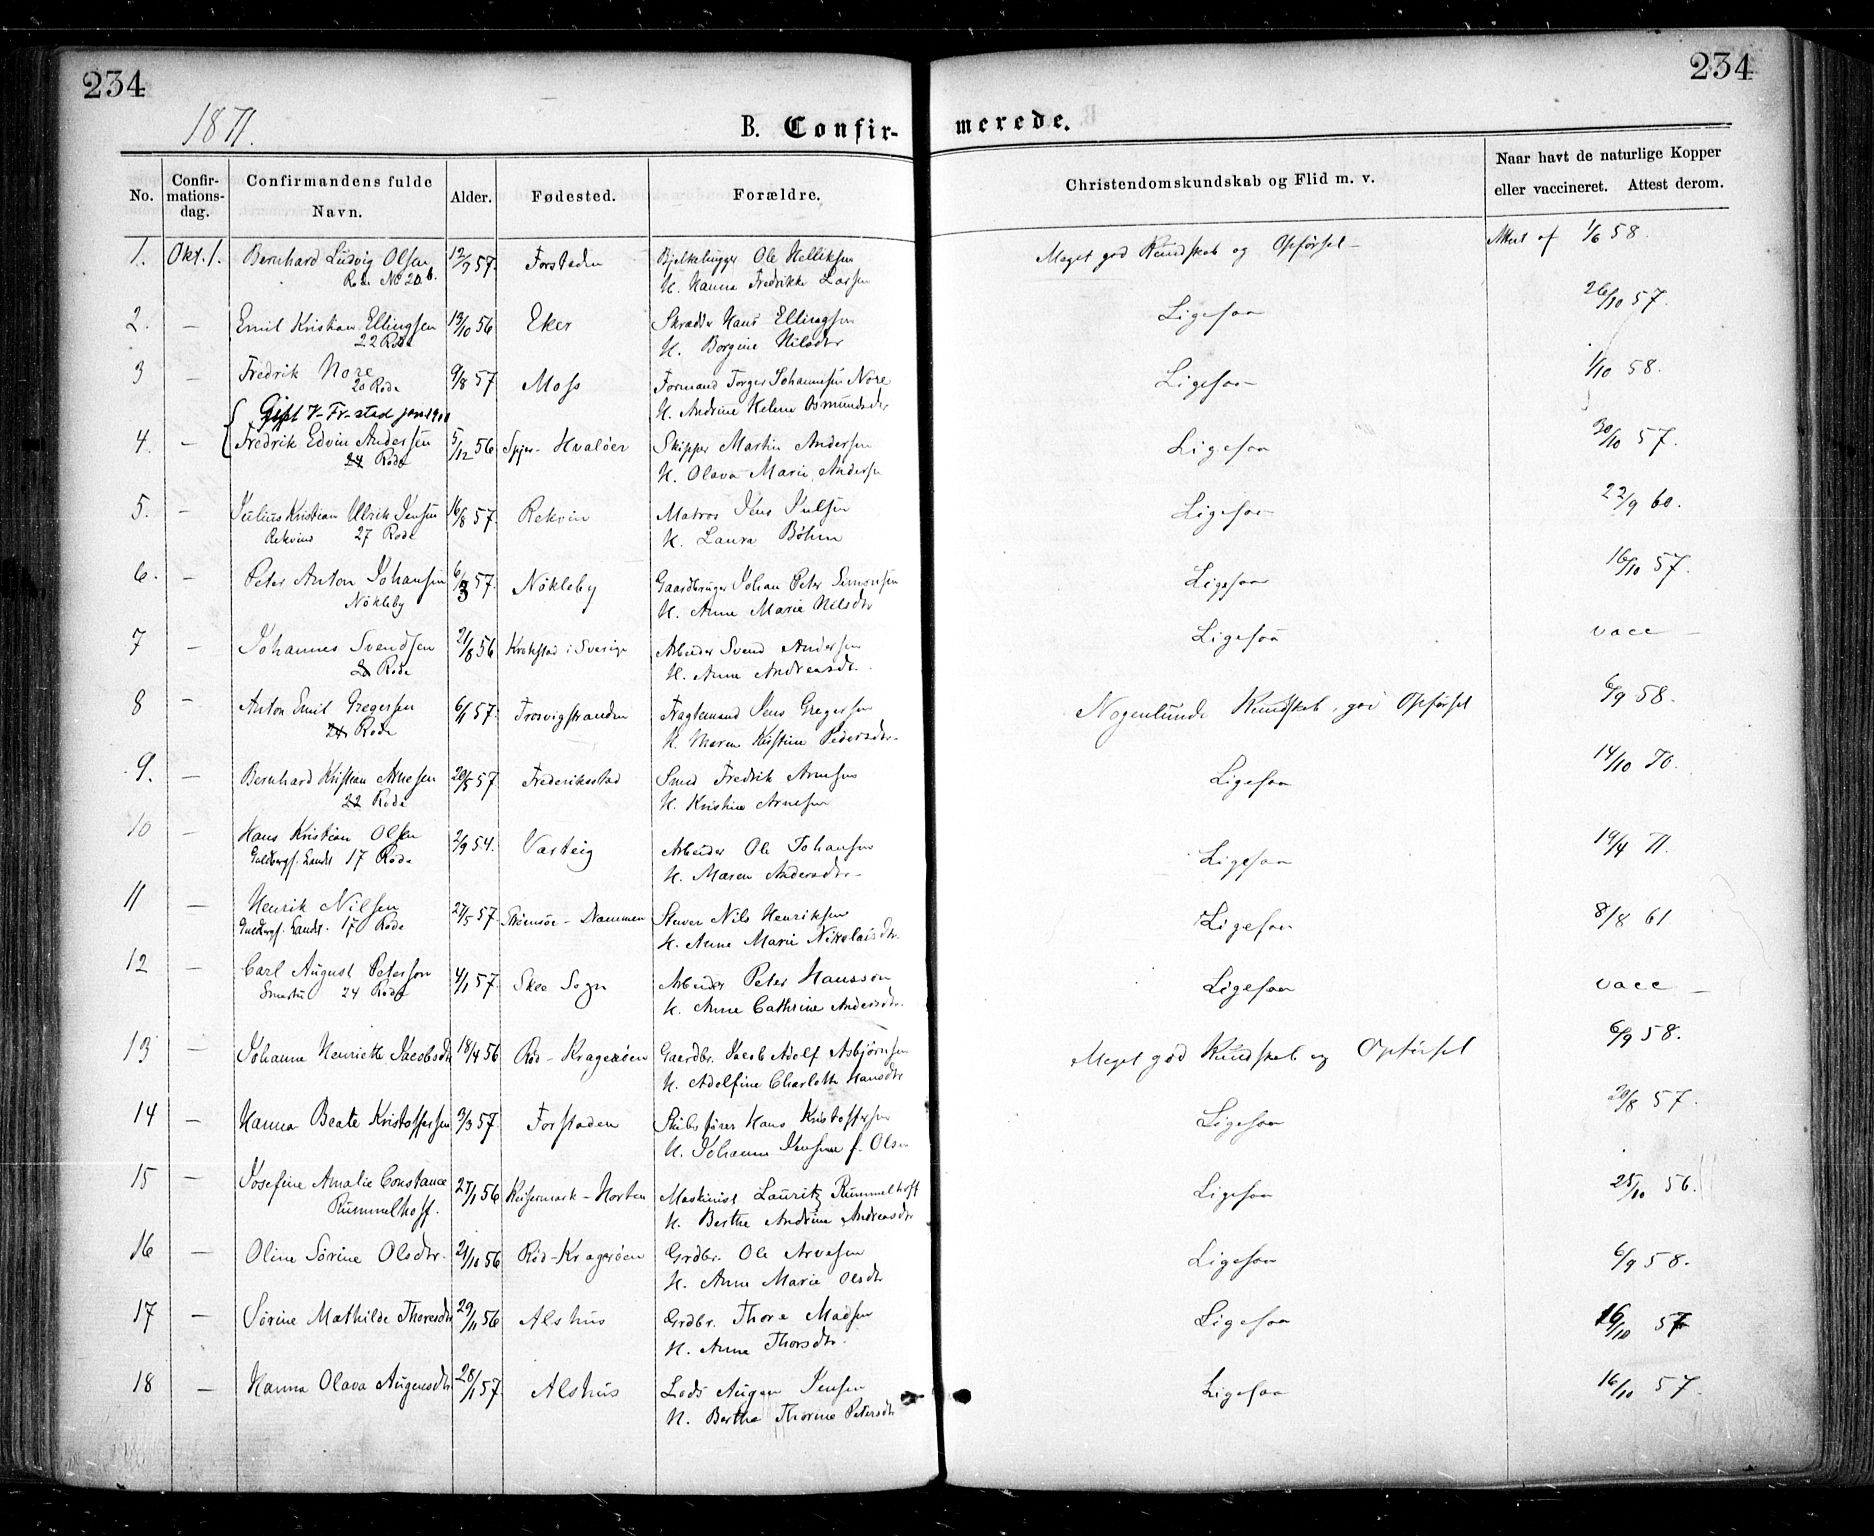 234
234
1871.
B. Confir-
merede.
No.
Confir-
mations-
dag.
Confirmandens fulde
Navn.
Alder.
Fødested.
Forældre.
Christendomskundskab og Flid m. v.
Naar havt de naturlige Kopper
eller vaccineret. Attest derom.
1. Okt. 1. Bernhard Ludvig Olsen 12/7 57. Forstaden Bjelkehugger Ole Helliksen Meget god Kundskab og Opførsel Attest af 1/6 58.
Rode No 20 b. H. Hanna Fredrikke Larsen
2. — Emil Kristian Ellingsen 13/10 56 Eker Skrædder Hans Ellingsen Ligesaa 26/10 57.
22 Rode H. Borgine Nilsdtr
3 — Fredrik Nore 9/8 57 Moss Formand Torger Johannesen Nore Ligesaa 1/10 58.
20 Rode H. Andrine Helene Osmundsdtr
Gift V-Fr-sted jan 1900
4. — Fredrik Edvin Andersen 5/12 56 Spjer-Hvaløer Skipper Martin Andersen Ligesaa 30/10 57.
24 Rode H. Olava Marie Andersen
5. — Julius Kristian Ulrik Jensen 16/8 57. Rekvin Matros Jens Julsen Ligesaa 22/9 60.
Rekvind 27 Rode H. Laura Böhm
6. — Peter Anton Johansen 6/3 57. Nökleby Gaardbruger Johan Peter Simonsen Ligesaa 16/10 57.
Nökleby H. Anne Marie Nilsdtr
7 — Johannes Svendsen 21/8 56 Krokstad i Sverige Arbeider Svend Andersen Ligesaa vacc —
Rode H. Anne Andreasdtr.
8 — Anton Emil Gregersen 6/1 57. Trosvigstranden Fragtemand Jens Gregersen Nogenlunde Kundskab, god Opførsel 6/9 58.
24 Rode H. Maren Kristine Pedersdtr
9. — Bernhard Kristian Arnesen 20/5 57 Frederiksstad Smed Fredrik Arnesen Ligesaa 14/10 70.
22 Rode H. Kristine Arnesen
10 — Hans Kristian Olsen 2/9 54. Varteig Arbeider Ole Johansen Ligesaa 19/4 71.
Guldbergs. Lands. 17 Rode H. Maren Andersdtr
11 — Henrik Nilsen 27/5 57 Strömsöe-Drammen Stuver Nils Henriksen Ligesaa 8/8 61
Guldbergs. Lands. 17 Rode H. Anne Marie Nikolaisdtr.
12 — Carl August Peterson 4/1 57. Skee Sogn Arbeider Peter Hansson Ligesaa vacc —
24 Rode H. Anne Cathrine Andersdtr.
13 — Johanne Henriette Jacobsdtr 18/4 56 Röd-Krageröen Gaardbr. Jacob Adolf Asbjörnsen Meget god Kundskab og Opførsel 6/9 58.
H. Adolfine Charlotte Hansdtr
14 — Hanna Beate Kristoffersen 3/3 57 Forstaden Skibsfører Hans Kristoffersen Ligesaa 20/8 57.
H. Johanne Jensine f. Olsen
15 — Josefine Amalie Constance 27/1 56 Keisemark-Horten Maskinist Lauritz Rummelhoff Ligesaa 25/10 56.
Rummelhoff. H. Berthe Andrine Andreasdtr
16 — Oline Sörine Olsdtr. 21/10 56 Röd-Krageröen Grdbr. Ole Arvesen Ligesaa 6/9 58.
H. Anne Marie Olsdtr
17 — Sörine Mathilde Thoresdtr 29/11 56 Alshus Grdbr. Thore Madsen Ligesaa 16/10 57
H. Anne Thorsdtr.
18 — Hanna Olava Augensdtr 28/1 57. Alshus Lods Augen Jensen Ligesaa 16/10 57.
H. Berthe Thorine Petersdtr